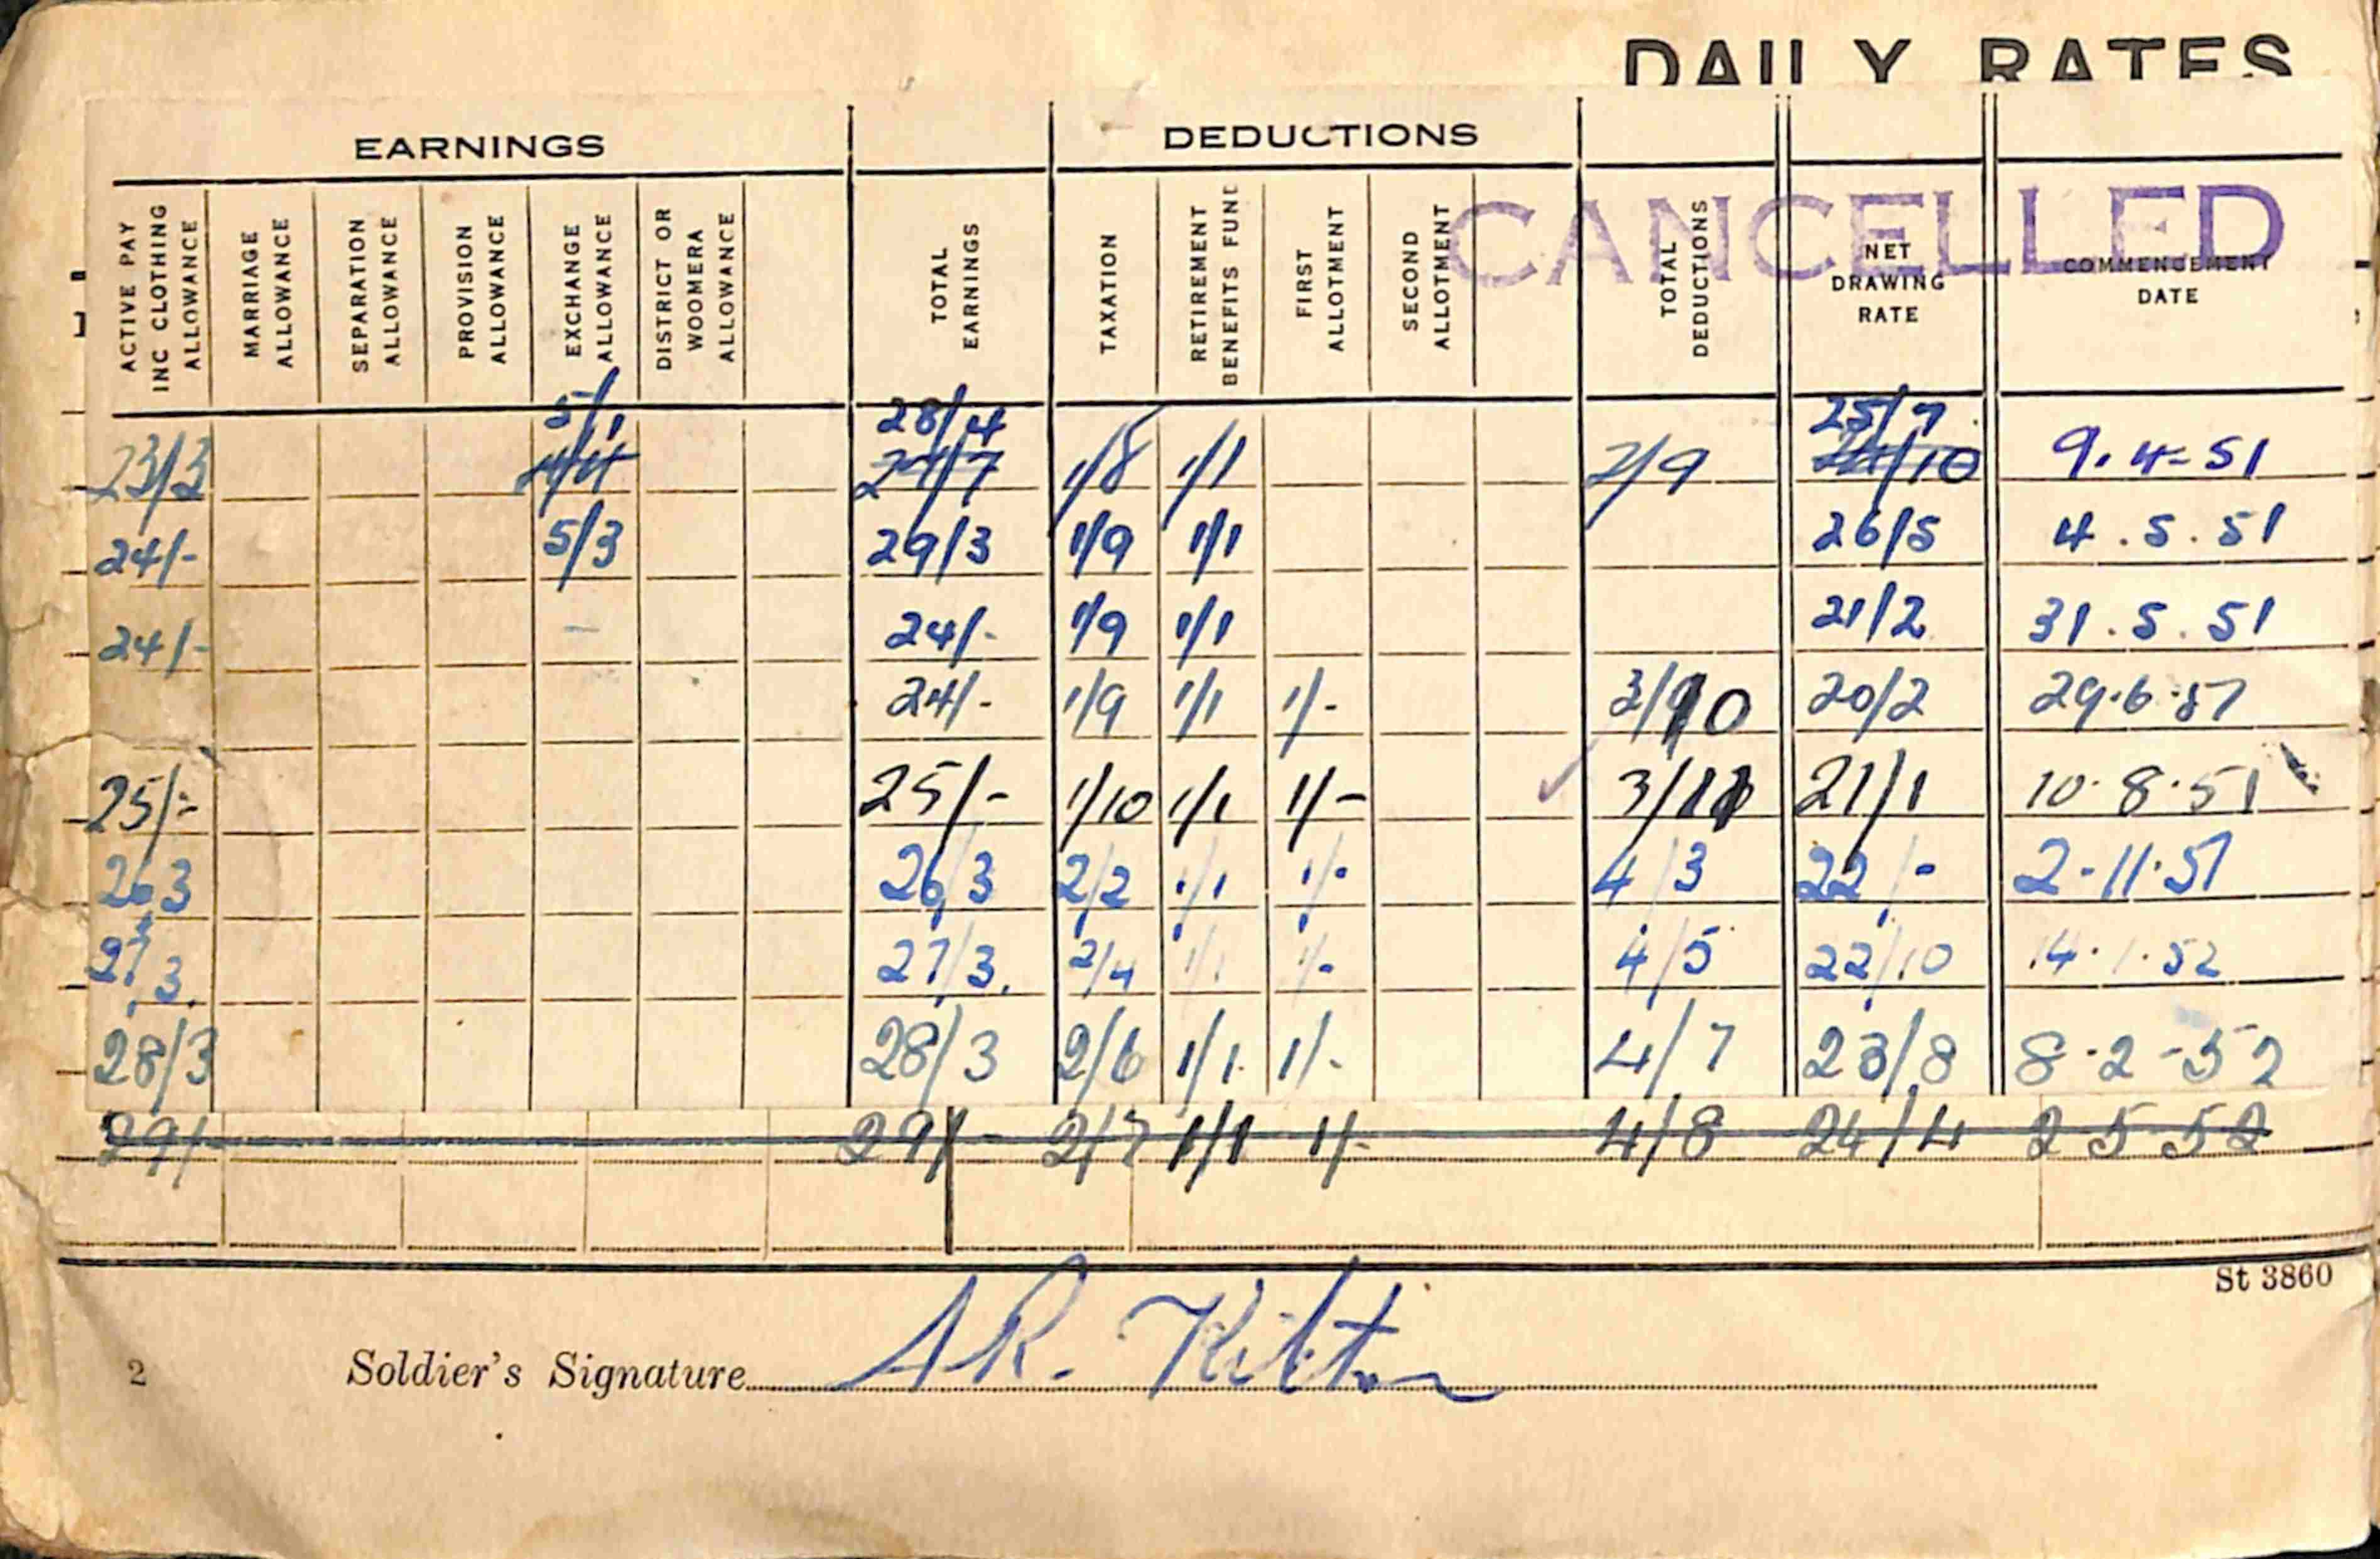 DAILY RATES
EARNINGS DEDUCTIONS
CANCELLED
ACTIVE PAY INC CLOTHING ALLOWANCE
MARRIAGE ALLOWANCE
SEPARATION ALLOWANCE
PROVISION ALLOWANCE
EXCHANGE ALLOWANCE
DISTRICT OR WOOMERA ALLOWANCE
TOTAL EARNINGS
TAXATION
RETIREMENT BENEFITS FUND
FIRST ALLOTMENT
SECOND ALLOTMENT
TOTAL DEDUCTIONS
NET DRAWING RATE
COMMENCEMENT DATE
5/1 28/4 25/7
23/3 27/7 1/8 1/1 2/9 24/10 9.4-51
24/- 5/3 29/3 1/9 1/1 26/5 4.5.51
24/- - 24/- 1/9 1/1 21/2 31.5.51
24/- 1/9 1/1 1/- 3/10 20/2 29.6.51
25/- 25/- 1/10 1/1 1/- 3/11 21/1 10.8.51
26/3 26/3 2/2 1/1 1/- 4/3 22/- 2-11.51
27/3. 27/3. 2/4 1/1 1/- 4/5 22/10 14.1.52
28/3 28/3 2/6 1/1 1/- 4/7 23/8 8-2-52
29/- 29/- 2/7 1/1 1/- 4/8 24/4 2 5 52
St 3860
2 Soldier's Signature A R.